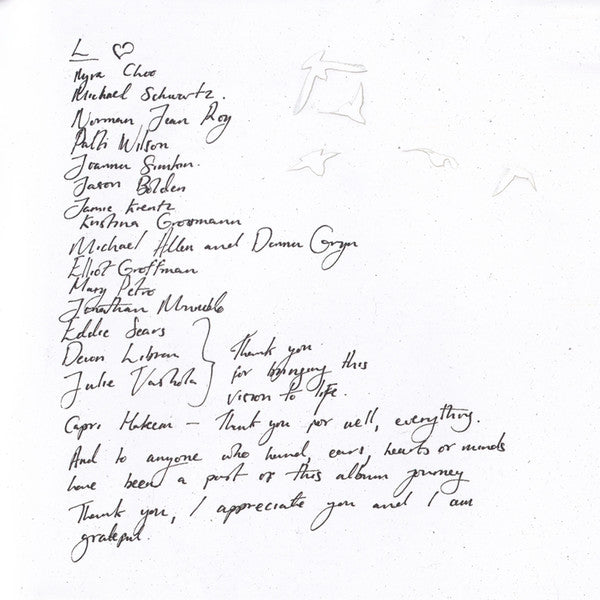 L ♡
Myra Choo
Michael Schwartz.
Norman Jean Roy
Patti Wilson
Joanna Simkin.
Jason Bolden
Jamie
Kristina Grossmann
Michael Allen and Donna Gryn
Elliot Groffman
Mary Petro
Jonathan
Eddie Sears
Devon Libran
Julie Vastola
Thank you
for bringing this
vision to life.
Capri – Thank you for well, everything.
And to anyone who hand, ears, hearts or minds
have been a part of this album journey
Thank you, I appreciate you and I am
grateful.